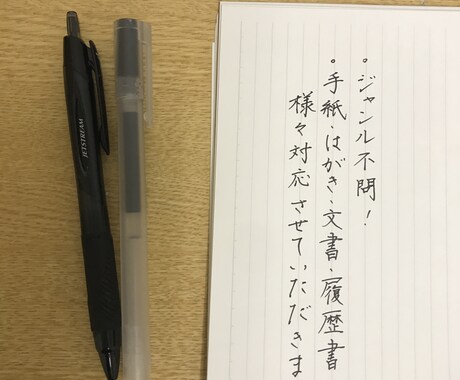 JETSTREAM
。ジャンル不問！
。手紙・はがき・文書・履歴書
様々対応させていただきま